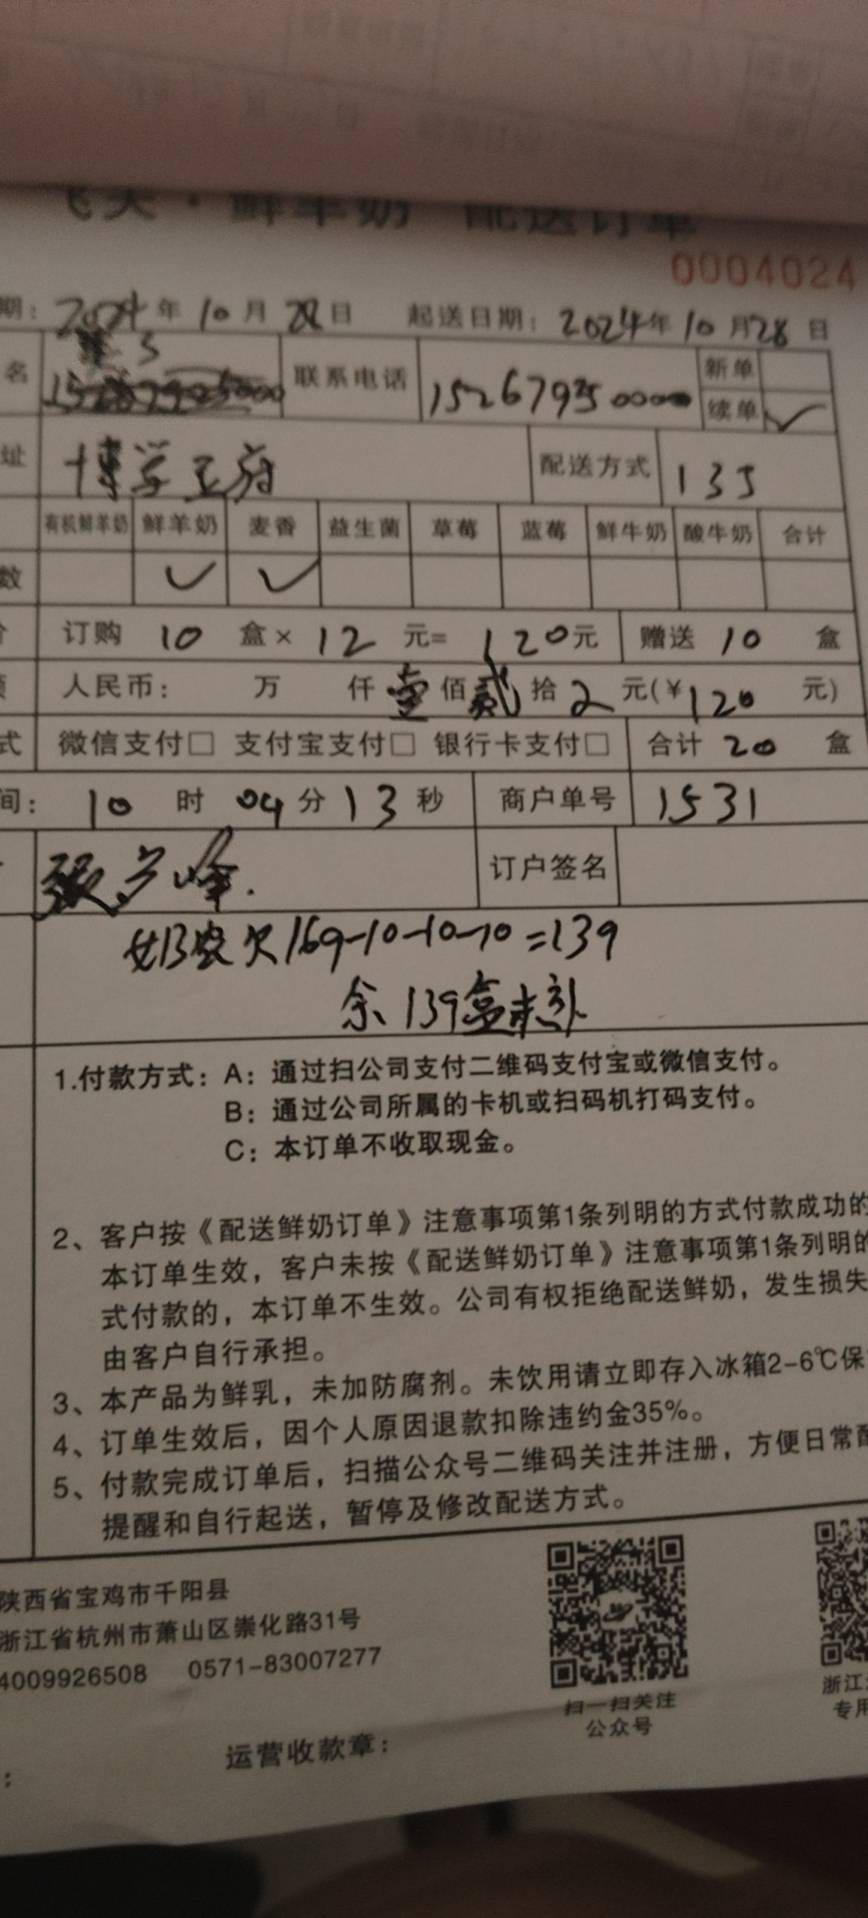 飞天·鲜羊奶 配送订单
0004024
期: 2024年10月28日 起送日期: 2024年10月28日
名 联系电话 15267935 0000 新单
续单 ✓
址 博学王府 配送方式 135
有机鲜羊奶 鲜羊奶 麦香 益生菌 草莓 蓝莓 鲜牛奶 酸牛奶 合计
数 ✓ ✓
订购 10 盒× 12 元= 120元 赠送 10 盒
人民币: 万 仟 壹 佰 贰 拾 元(¥120 元)
式 微信支付□ 支付宝支付□ 银行卡支付□ 合计 20 盒
间: 10 时 04 分 13 秒 商户单号 1531
订户签名
欠169-10-10-10=139
余139盒未补
1.付款方式: A: 通过扫公司支付二维码支付宝或微信支付。
B: 通过公司所属的卡机或扫码机打码支付。
C: 本订单不收取现金。
2、客户按《配送鲜奶订单》注意事项第1条列明的方式付款成功的
本订单生效，客户未按《配送鲜奶订单》注意事项第1条列明的
式付款的，本订单不生效。公司有权拒绝配送鲜奶，发生损失
由客户自行承担。
3、本产品为鲜乳，未加防腐剂。未饮用请立即存入冰箱2-6℃保
4、订单生效后，因个人原因退款扣除违约金35%。
5、付款完成订单后，扫描公众号二维码关注并注册，方便日常配
提醒和自行起送，暂停及修改配送方式。
陕西省宝鸡市千阳县
浙江省杭州市萧山区崇化路31号
4009926508 0571-83007277
扫一扫关注
公众号
浙江
专用
运营收款章: